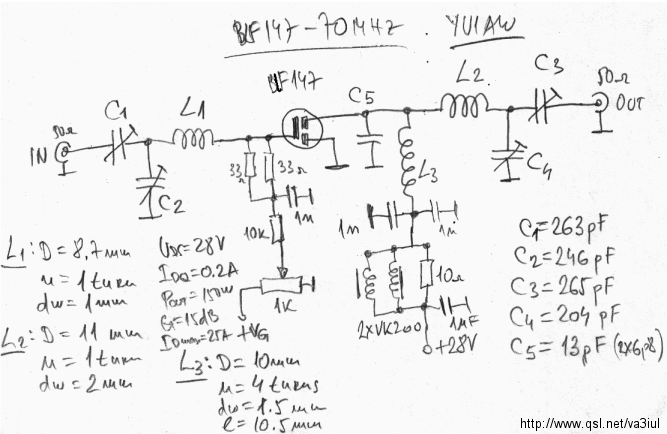 BLF147-70MHz. YU1AW
BLF147
50Ω
IN
C1
L1
C2
33Ω
33Ω
1n
10K
1K
+VG
C5
L2
C3
50Ω
OUT
C4
L3
1n
1n
10Ω
2xVK200
1µF
+28V
L1: D = 8,7mm
n = 1 turn
dw = 1mm
L2: D = 11 mm
n = 1 turn
dw = 2mm
UDC = 28V
IDQ = 0.2A
Pout = 150W
G = 15dB
IDmax = 25A
L3: D = 10mm
n = 4 turns
dw = 1.5 mm
l = 10.5mm
C1 = 263pF
C2 = 246pF
C3 = 265pF
C4 = 204pF
C5 = 13pF (2x6p8)
http://www.qsl.net/va3iul